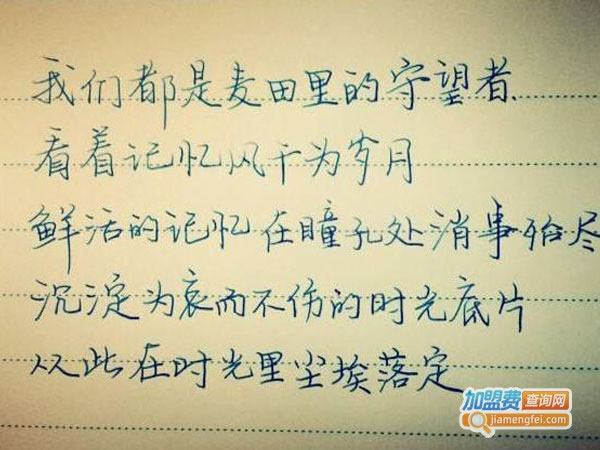 我们都是麦田里的守望者.
看着记忆风干为岁月
鲜活的记忆在瞳孔处消事殆尽
沉淀为哀而不伤的时光底片
从此在时光里尘埃落定
加盟费查询网
jiamengfei.com